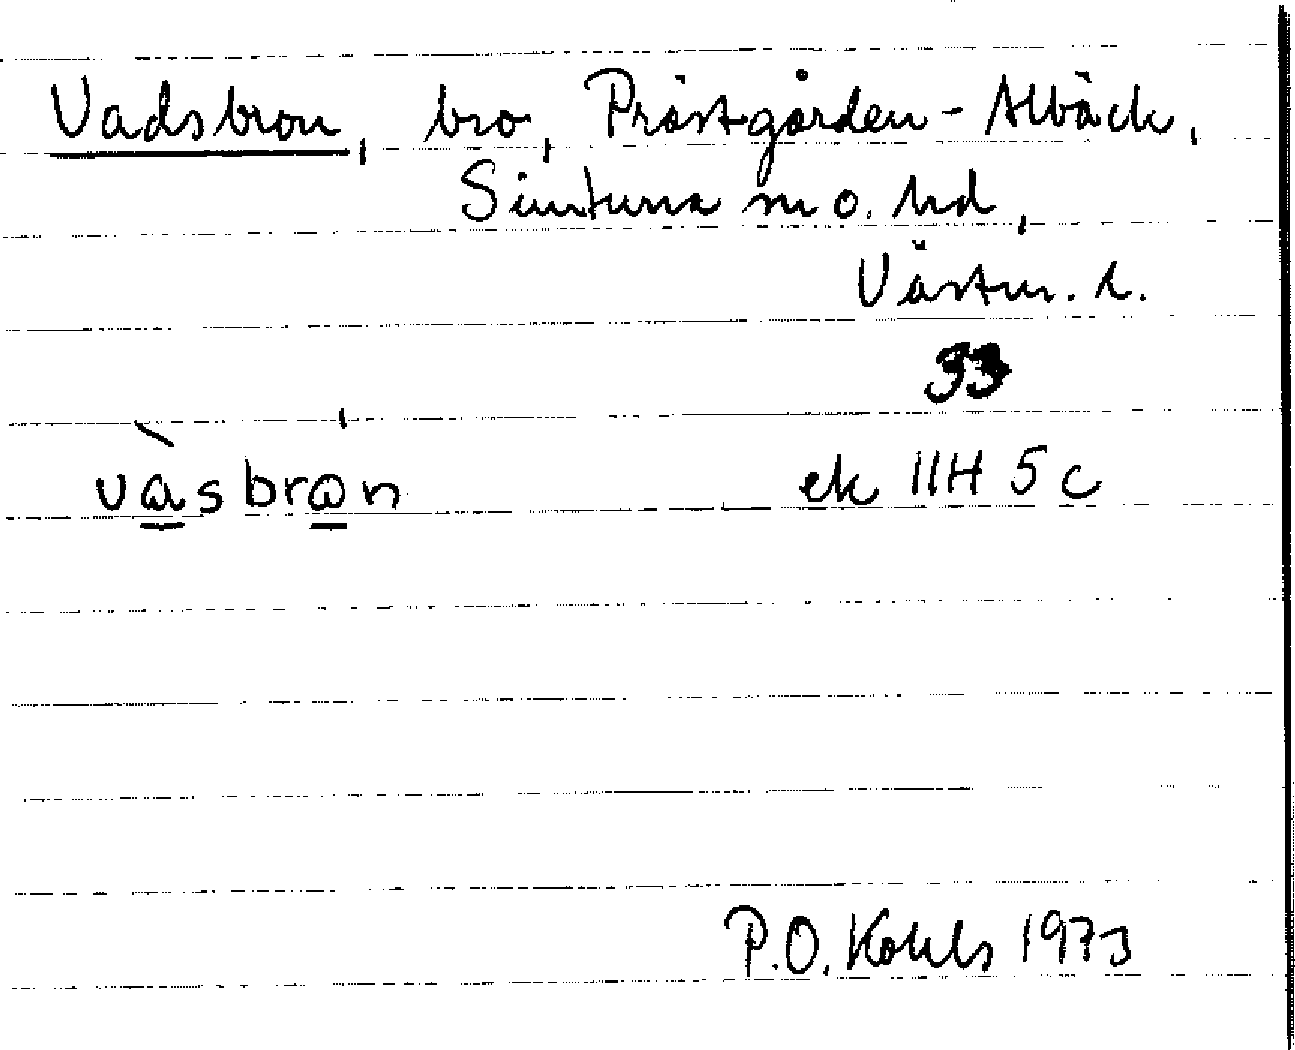 Vadsbron, bro, Prästgården - Albäck,
Simtuna sn o. hd,
Västm. l.
33
vàsbrɑn
ek 11H 5c
P.O. Kohls 1973